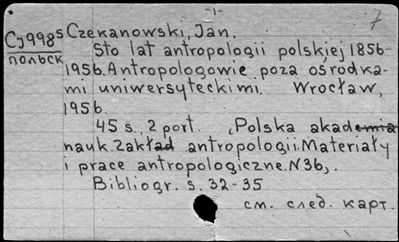 -1-
7
Сj998s Czekanowski, Jan.
польск
Sto lat antropologii polskiej 1856-
1956. Antropologowie poza ośrodka-
mi uniwersyteckimi. Wrocław,
1956.
45 s., 2 port. (Polska akademia
nauk. Zakład antropologii. Materiały
i prace antropologiczne. N36).
Bibliogr. s. 32-35
см. след. карт.